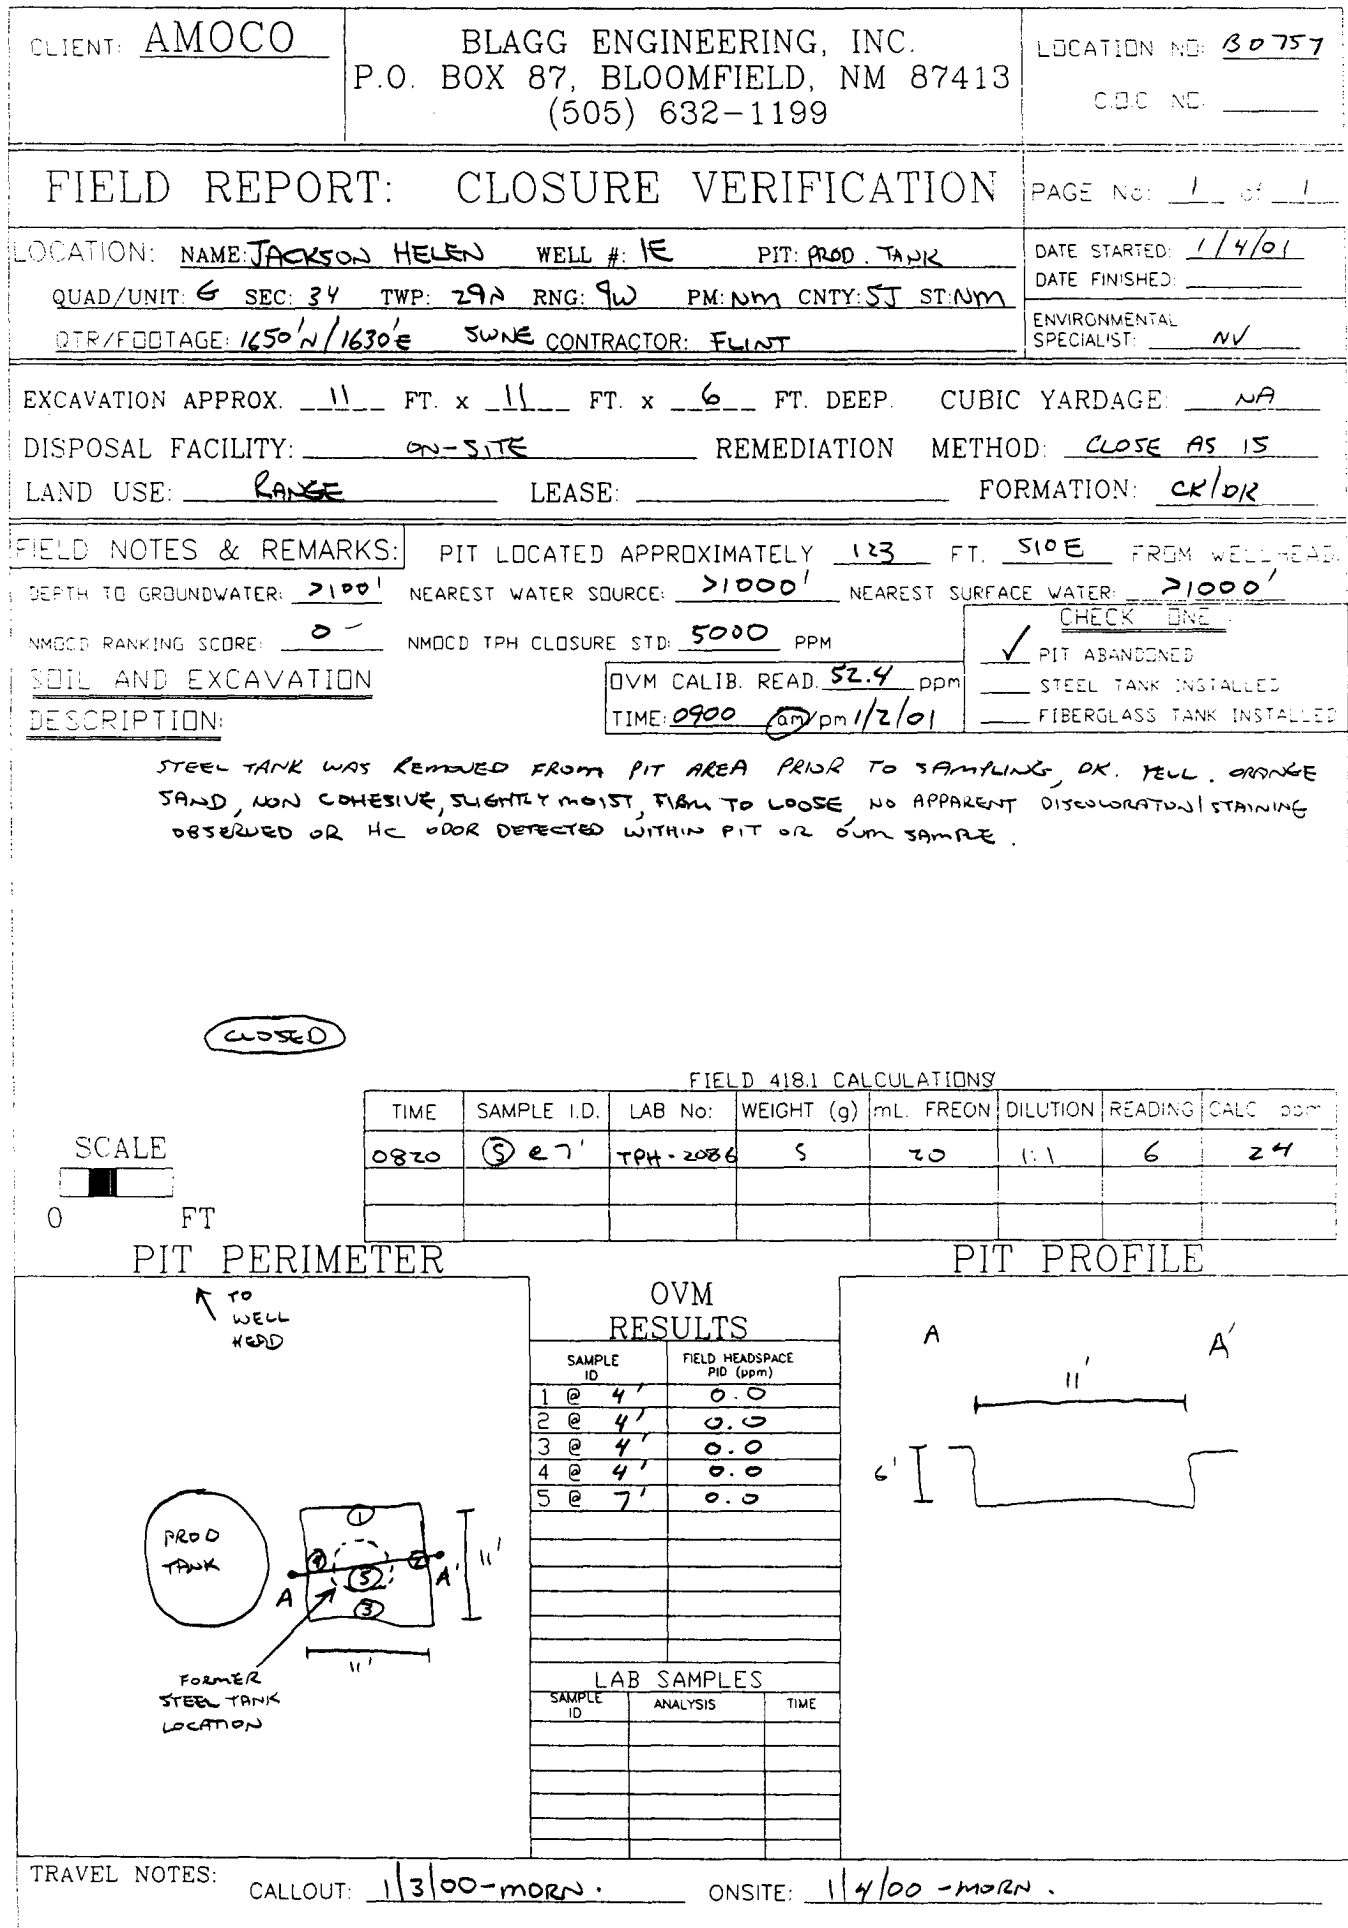 CLIENT: AMOCO
BLAGG ENGINEERING, INC.
P.O. BOX 87, BLOOMFIELD, NM 87413
(505) 632-1199
LOCATION NO: B0757
C.O.C NO:
FIELD REPORT: CLOSURE VERIFICATION
PAGE No: 1 of 1
LOCATION: NAME: JACKSON HELEN WELL #: 1E PIT: PROD. TANK
QUAD/UNIT: G SEC: 34 TWP: 29N RNG: 9W PM: NM CNTY: SJ ST: NM
QTR/FOOTAGE: 1650'N/1630'E SWNE CONTRACTOR: FLINT
DATE STARTED: 1/4/01
DATE FINISHED:
ENVIRONMENTAL
SPECIALIST: NV
EXCAVATION APPROX. 11 FT. x 11 FT. x 6 FT. DEEP. CUBIC YARDAGE: NA
DISPOSAL FACILITY: ON-SITE REMEDIATION METHOD: CLOSE AS IS
LAND USE: RANGE LEASE: FORMATION: CK/DK
FIELD NOTES & REMARKS: PIT LOCATED APPROXIMATELY 123 FT. S10E FROM WELLHEAD.
DEPTH TO GROUNDWATER: >100' NEAREST WATER SOURCE: >1000' NEAREST SURFACE WATER: >1000'
NMOCD RANKING SCORE: 0 NMOCD TPH CLOSURE STD: 5000 PPM
CHECK ONE:
✓ PIT ABANDONED
STEEL TANK INSTALLED
FIBERGLASS TANK INSTALLED
SOIL AND EXCAVATION
DESCRIPTION:
OVM CALIB. READ. 52.4 ppm
TIME: 0900 am/pm 1/2/01
STEEL TANK WAS REMOVED FROM PIT AREA PRIOR TO SAMPLING, DK. YELL. ORANGE
SAND, NON COHESIVE, SLIGHTLY MOIST, FIRM TO LOOSE, NO APPARENT DISCOLORATON/STAINING
OBSERVED OR HC ODOR DETECTED WITHIN PIT OR OVM SAMPLE.
CLOSED
FIELD 418.1 CALCULATIONS
TIME SAMPLE I.D. LAB No: WEIGHT (g) mL. FREON DILUTION READING CALC ppm
0820 5 @ 7' TPH-2086 5 20 1:1 6 24
SCALE
0 FT
PIT PERIMETER
TO
WELL
HEAD
PROD
TANK
1
4
2
5
3
A
A'
11'
11'
FORMER
STEEL TANK
LOCATION
OVM
RESULTS
SAMPLE ID FIELD HEADSPACE PID (ppm)
1 @ 4' 0.0
2 @ 4' 0.0
3 @ 4' 0.0
4 @ 4' 0.0
5 @ 7' 0.0
LAB SAMPLES
SAMPLE ID ANALYSIS TIME
PIT PROFILE
A A'
11'
6'
TRAVEL NOTES: CALLOUT: 1/3/00-MORN. ONSITE: 1/4/00-MORN.